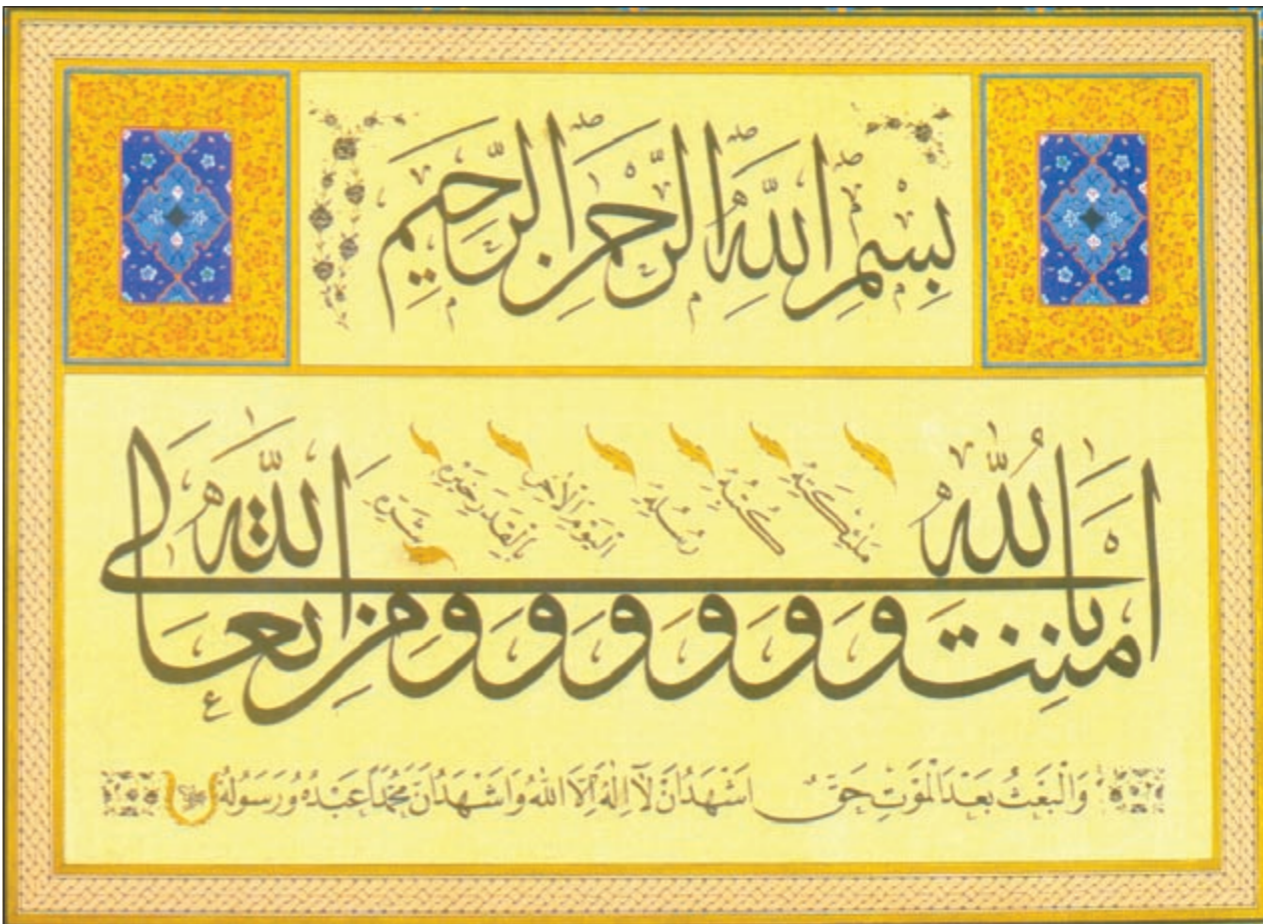 بِسْمِ اللهِ الرَّحْمٰنِ الرَّحِيمِ
اٰمَنْتُ بِاللهِ وَمَلٰئِكَتِهِ وَكُتُبِهِ وَرُسُلِهِ وَالْيَوْمِ الْاٰخِرِ وَبِالْقَدَرِ خَيْرِهِ وَشَرِّهِ مِنَ اللهِ تَعَالٰى
وَالْبَعْثُ بَعْدَ الْمَوْتِ حَقٌّ اَشْهَدُ اَنْ لَآ اِلٰهَ اِلَّا اللهُ وَاَشْهَدُ اَنَّ مُحَمَّدًا عَبْدُهُ وَرَسُولُهُ